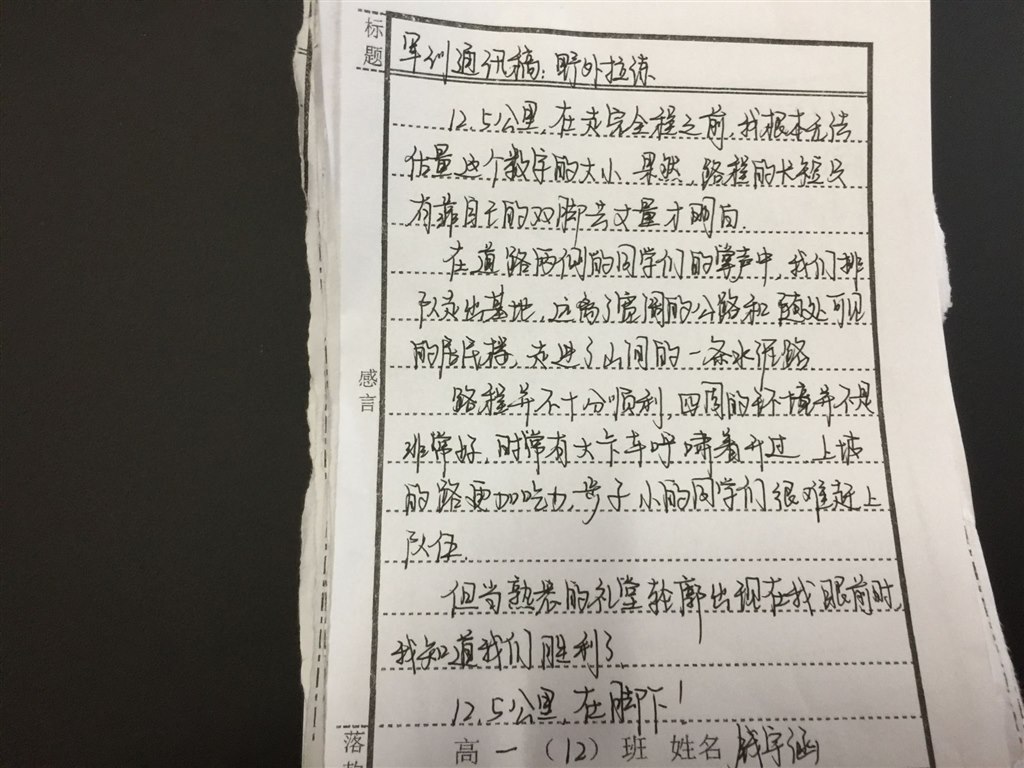 标题
军训通讯稿：野外拉练
12.5公里，在走完全程之前，我根本无法
估量这个数字的大小。果然，路程的长短只
有靠自己的双脚去丈量才明白.
在道路两侧的同学们的掌声中，我们排
队走出基地，远离了宽阔的公路和随处可见
的居民楼，走进了山间的一条水泥路
感言
路程并不十分顺利，四周的环境并不是
非常好，时常有大卡车呼啸着开过，上坡
的路更加吃力，步子小的同学们很难赶上
队伍.
但当熟悉的礼堂轮廓出现在我眼前时，
我知道我们胜利了.
12.5公里，在脚下！
落款
高一（12）班 姓名 钱宇涵